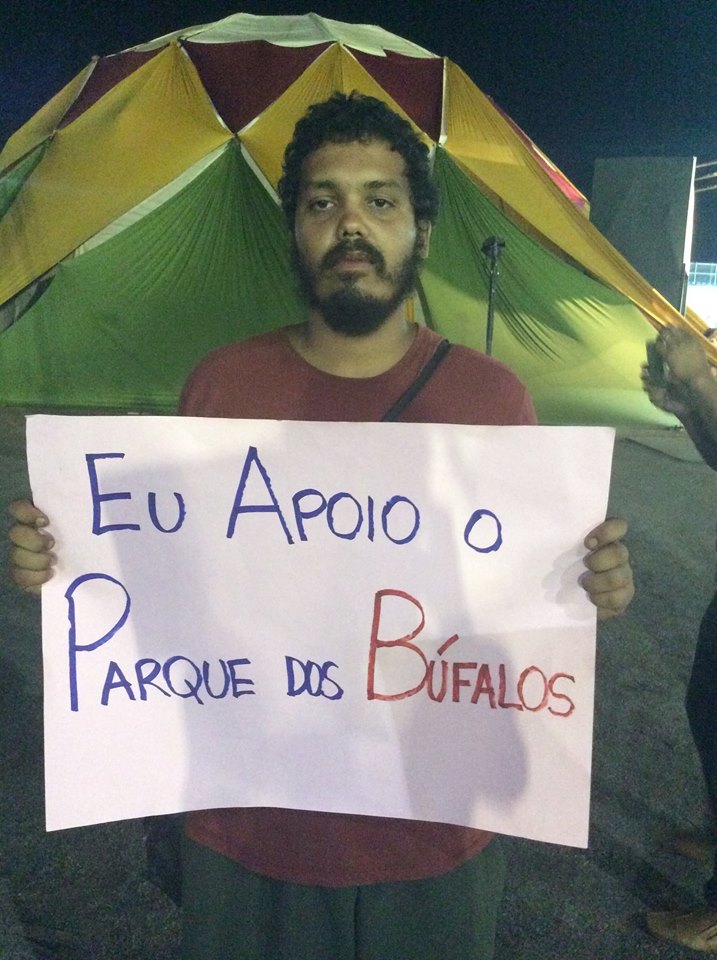 EU APOIO O
PARQUE DOS BÚFALOS